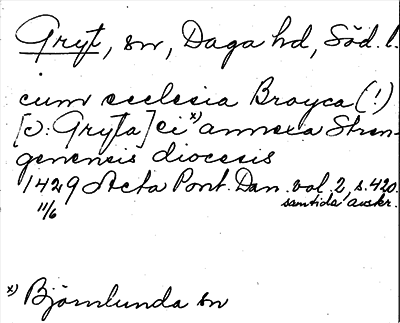 Gryt, sn, Daga hd, Söd. l.
cum ecclesia Brayca (!)
[ɔ: Gryta] ei x) annexa Stren-
genensis diocesis
1429 Acta Pont. Dan. vol. 2, s. 420.
11/6 samtida avskr.
x) Björnlunda sn